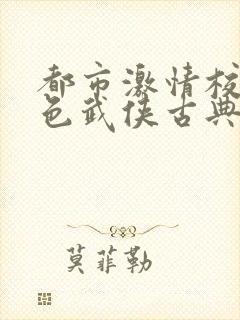 都市激情校
色武侠古典
莫菲勒